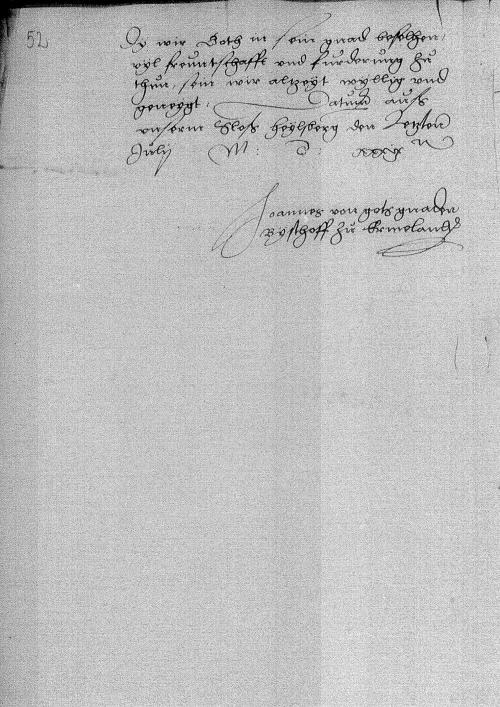 52
Dy wir Goth in sein gnad befelhen,
vyl freuntschafft vnd furderung zu
thun, sein wir altzeyt wyllig vnd
geneygt. Datum auß
vnserm Sloß Heylsberg den Letzten
Julij M: D: xxxx
Joannes von gots gnaden
Bysschoff zu Ermelandt